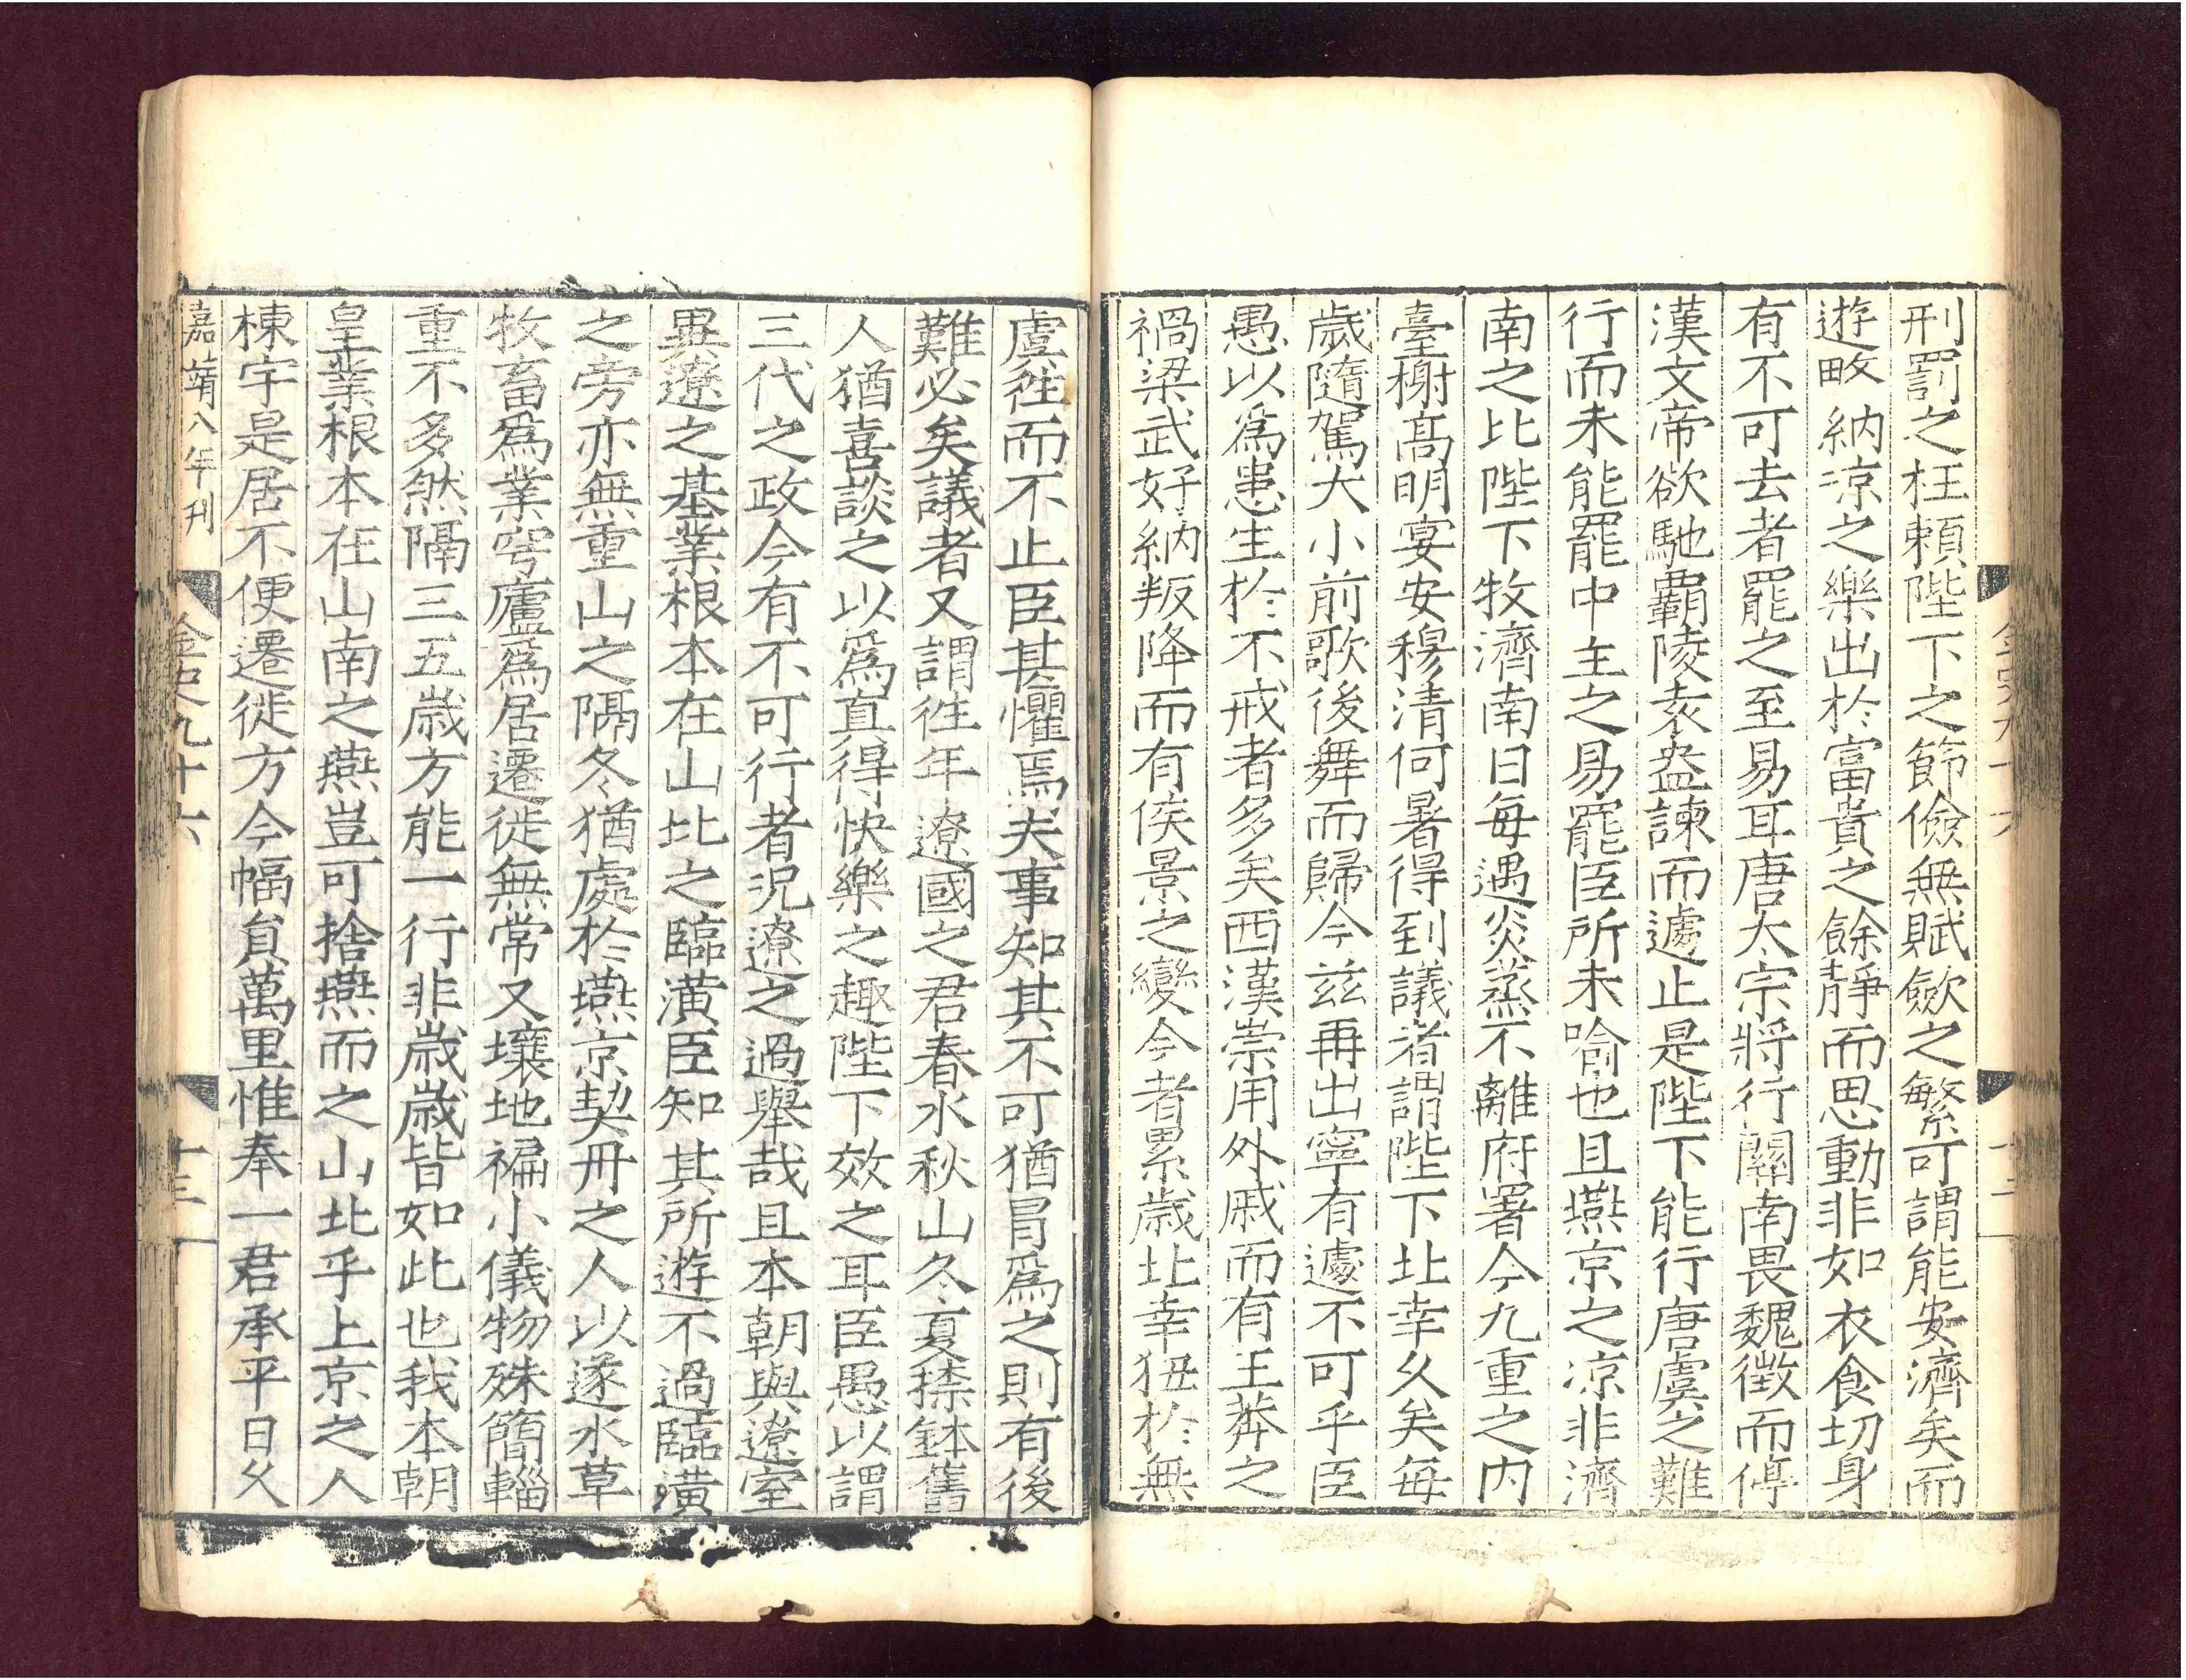 刑罰之枉頼陛下之節儉無賦歛之繁可謂能安濟矣而
遊畋納涼之樂出於富貴之餘靜而思動非如衣食切身
有不可去者罷之至易耳唐太宗將行關南畏魏徵而停
漢文帝欲馳霸陵袁盎諫而遽止是陛下能行唐虞之難
行而未能罷中主之易罷臣所未喻也且燕京之涼非濟
南之比陛下牧濟南日每遇炎蒸不離府署今九重之内
臺榭髙明宴安穆清何暑得到議者謂陛下北幸乆矣每
歲隨駕大小前歌後舞而歸今兹再出寧有遽不可乎臣
愚以爲患生於不戒者多矣西漢崇用外戚而有王莽之
禍梁武好納叛降而有侯景之變今者累歲北幸狃於無
虞徃而不止臣甚懼焉夫事知其不可猶冒爲之則有後
難必矣議者又謂徃年遼國之君春水秋山冬夏捺鉢舊
人猶喜談之以爲真得快樂之趣陛下效之耳臣愚以謂
三代之政今有不可行者况遼之過舉哉且本朝與遼室
異遼之基業根本在山北之臨潢臣知其所遊不過臨潢
之旁亦無重山之隔冬猶處於燕京契丹之人以逐水草
牧畜爲業穹廬爲居遷徙無常又壤地褊小儀物殊簡輜
重不多然隔三五歲方能一行非歲歲皆如此也我本朝
皇業根本在山南之燕豈可捨燕而之山北乎上京之人
棟宇是居不便遷徙方今幅負萬里惟奉一君承平日乆
嘉靖八年刋
金史九十六
十三